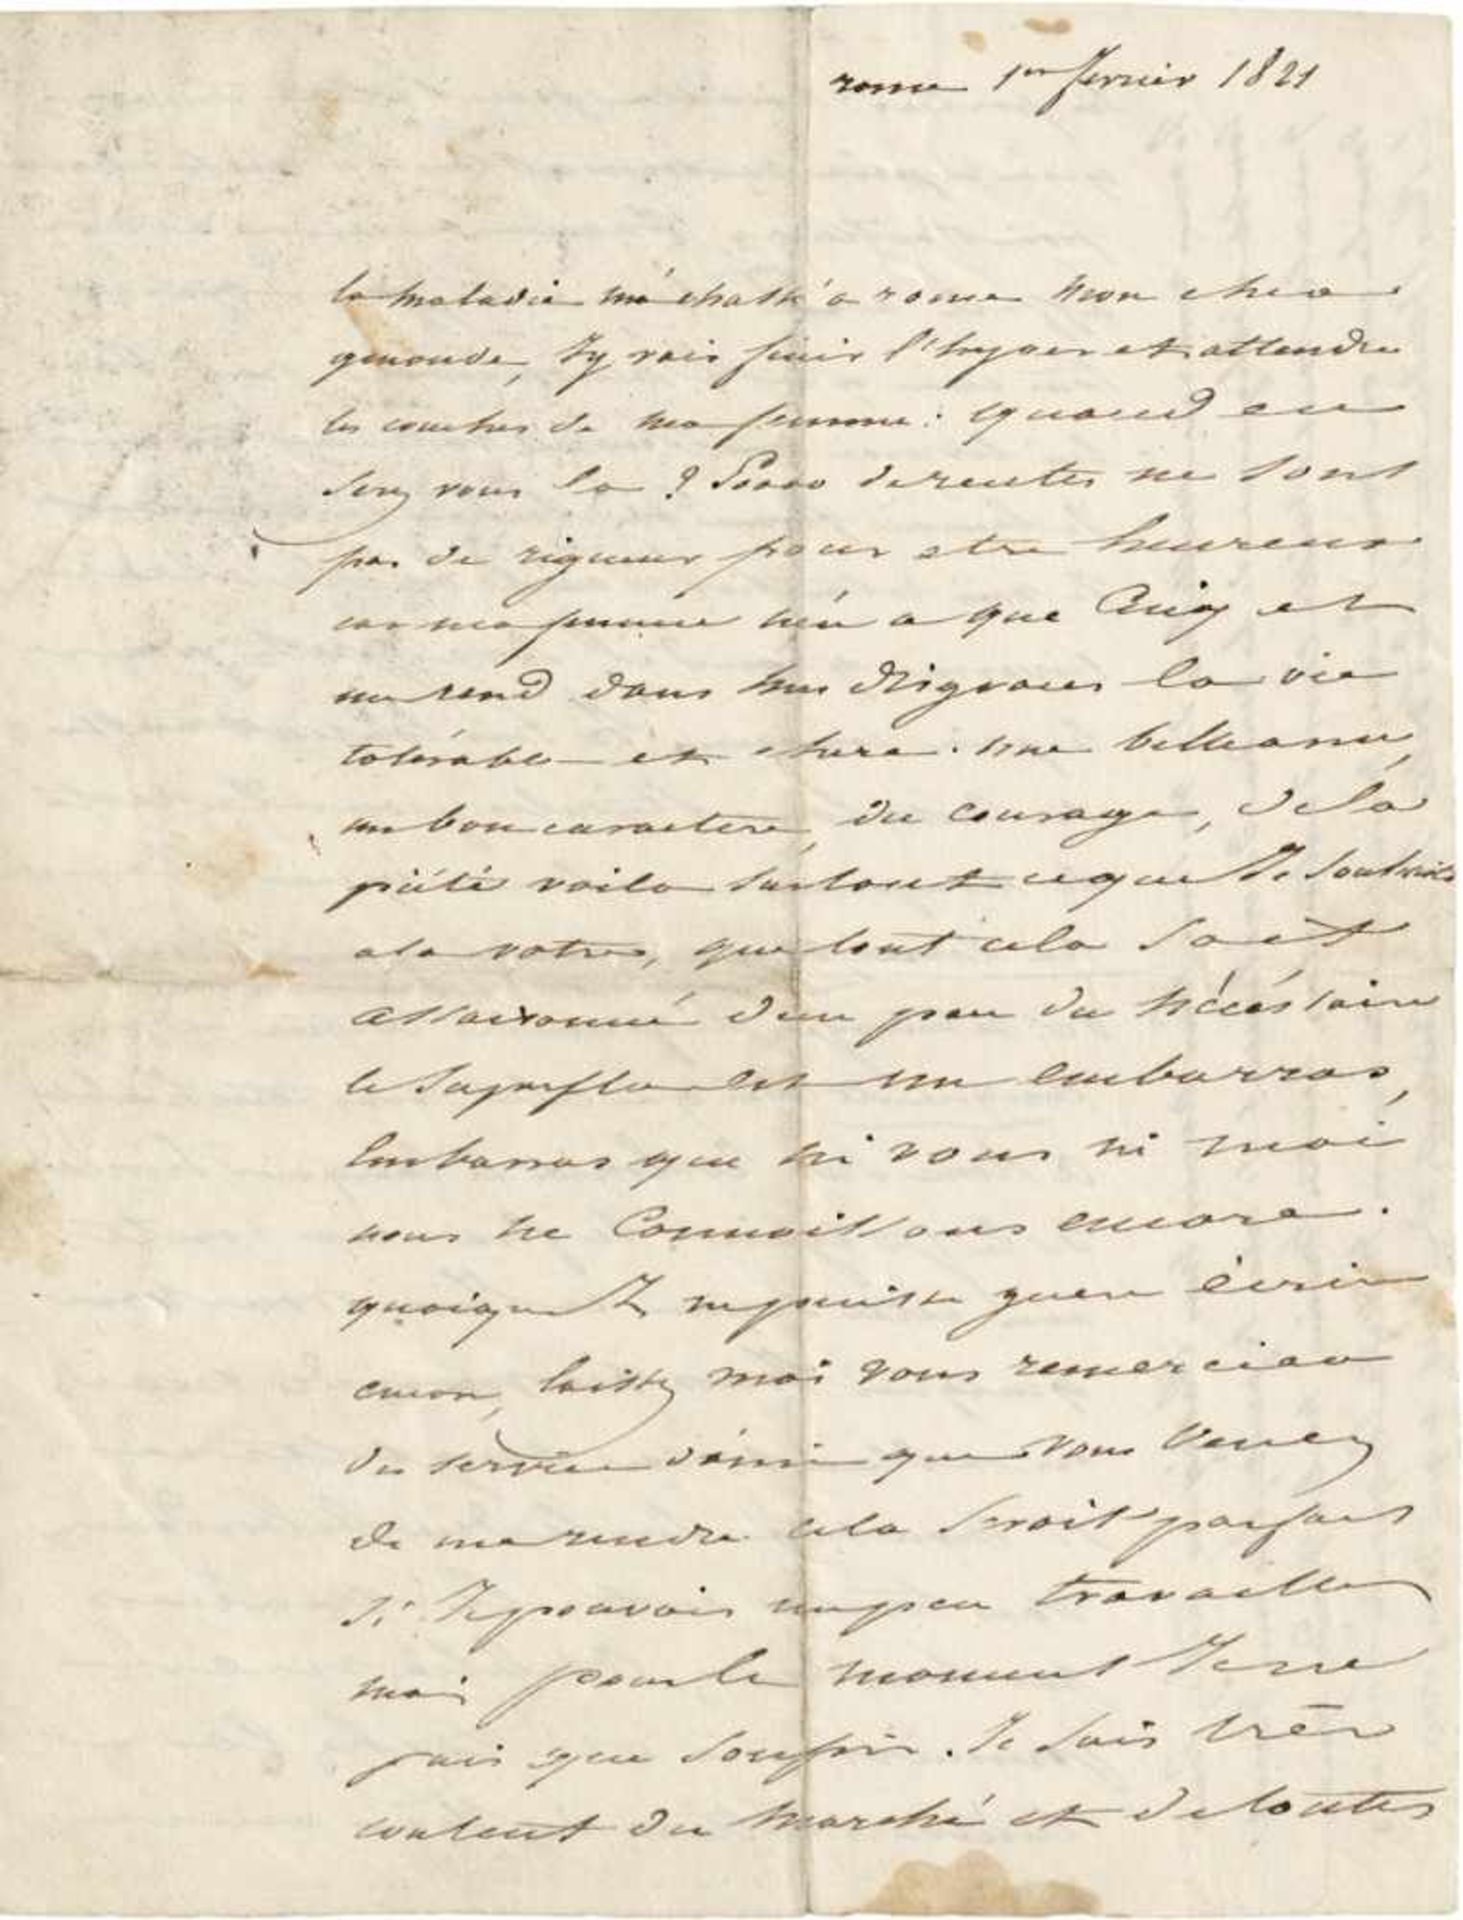 rome 1er fevrier 1821
la maladie m'a chassé a rome mon cher
genoude, J'y vais finir l'hyver et attendre
les couches de ma femme: quand en
serez vous la ? de rentes ne sont
pas de rigueur pour etre heureux
car ma femme n'en a que cinq et
me rend dans mes disgraces la vie
tolérable et chere. une belle ame,
un bon caractere, du courage, de la
piété voila surtout ce que Je souhaite
a la votre, que tout cela soit
assaisonné d'un peu du nécéssaire
le superflu est un embarras,
embarras que ni vous ni moi
nous ne connoissons encore.
quoique Je ne puisse guere écrire
encore, laissez moi vous remercier
du service d'ami que vous venez
de me rendre cela seroit parfait
si Je pouvois un peu travailler
mais pour le moment Je ne
fais que souffrir. Je suis très
content du marché et de toutes